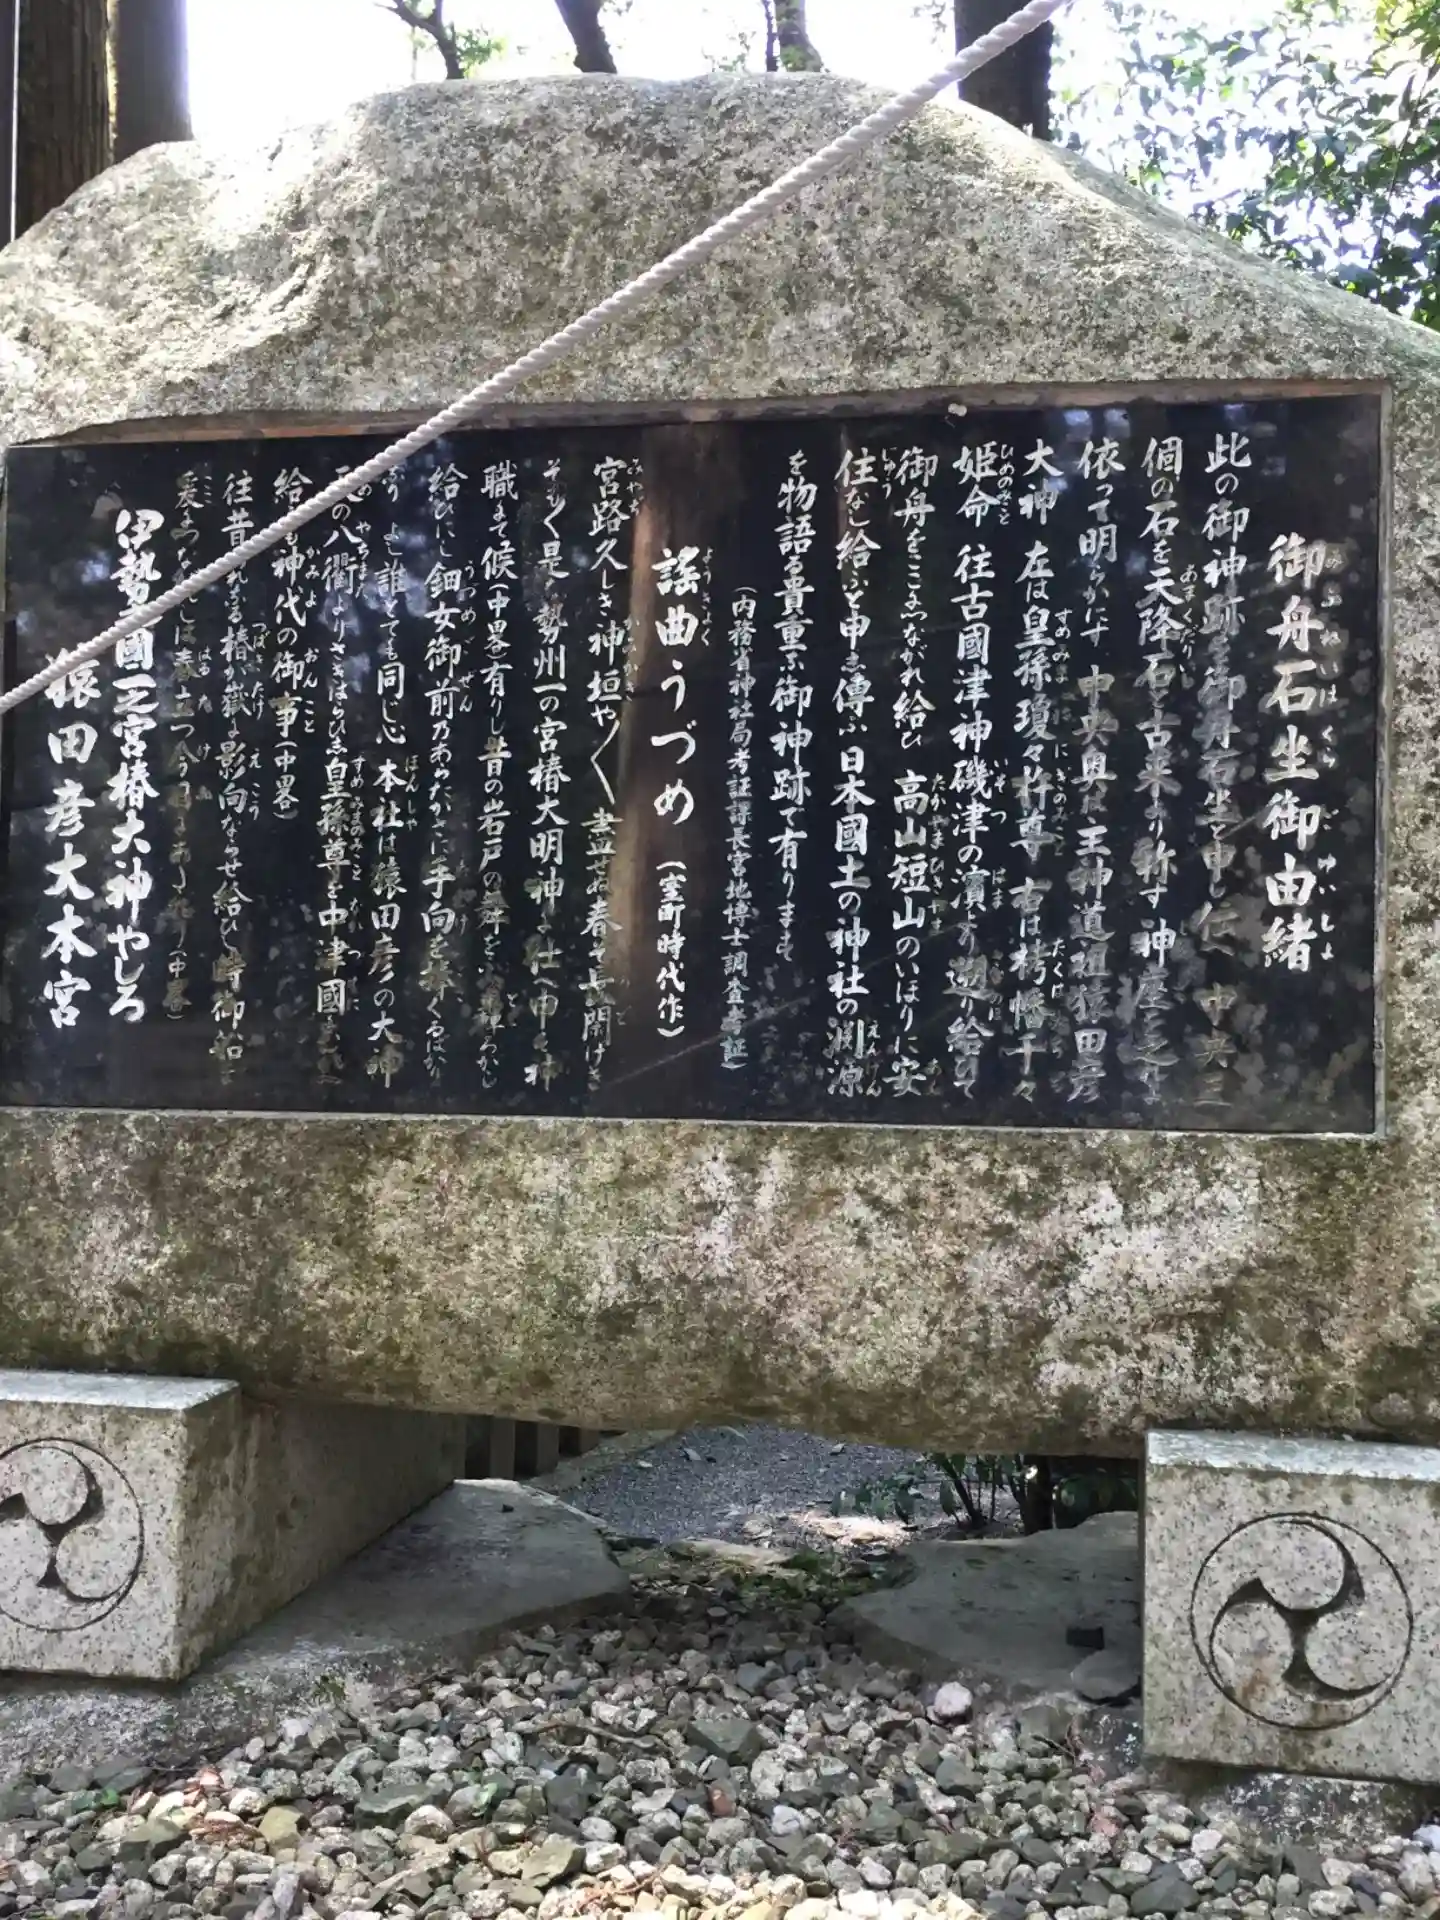 御舟石坐御由緒
此の御神跡を御舟石坐と申し伝へ 中央三
個の石を天降石と古来より称す 神座
依って明らかにす 中央奥は主神道祖猿田彦
大神 左は皇孫瓊々杵尊 右は栲幡千々
姫命 往古國津神磯津の濱より遡り給ひて
御舟をここにつながれ給ひ 高山短山のいほりに安
住なし給ふと申し傳ふ日本國土の神社の渊源
を物語る貴重な御神跡で有ります
(内務省神社局考証課長宮地博士調査考証)
謡曲うづめ (室町時代作)
宮路久しき神垣や〱 立せぬ春ぞ長閑けき
そも〱是は勢州一の宮椿大明神に仕へ申す神
職にて候(中畧有りし昔の岩戸の舞を
給ひにし鈿女御前乃あらたかに手向を捧くるばかり
よし誰とても同じ心 本社は猿田彦の大神
の八衢よりさきはらひし皇孫尊を中津國
給も神代の御事(中畧)
往昔 椿が嶽に影向ならせ給ひし時御船を
はるたつけふ (中畧)
伊勢國一之宮椿大神やしろ
猿田彦大本宮